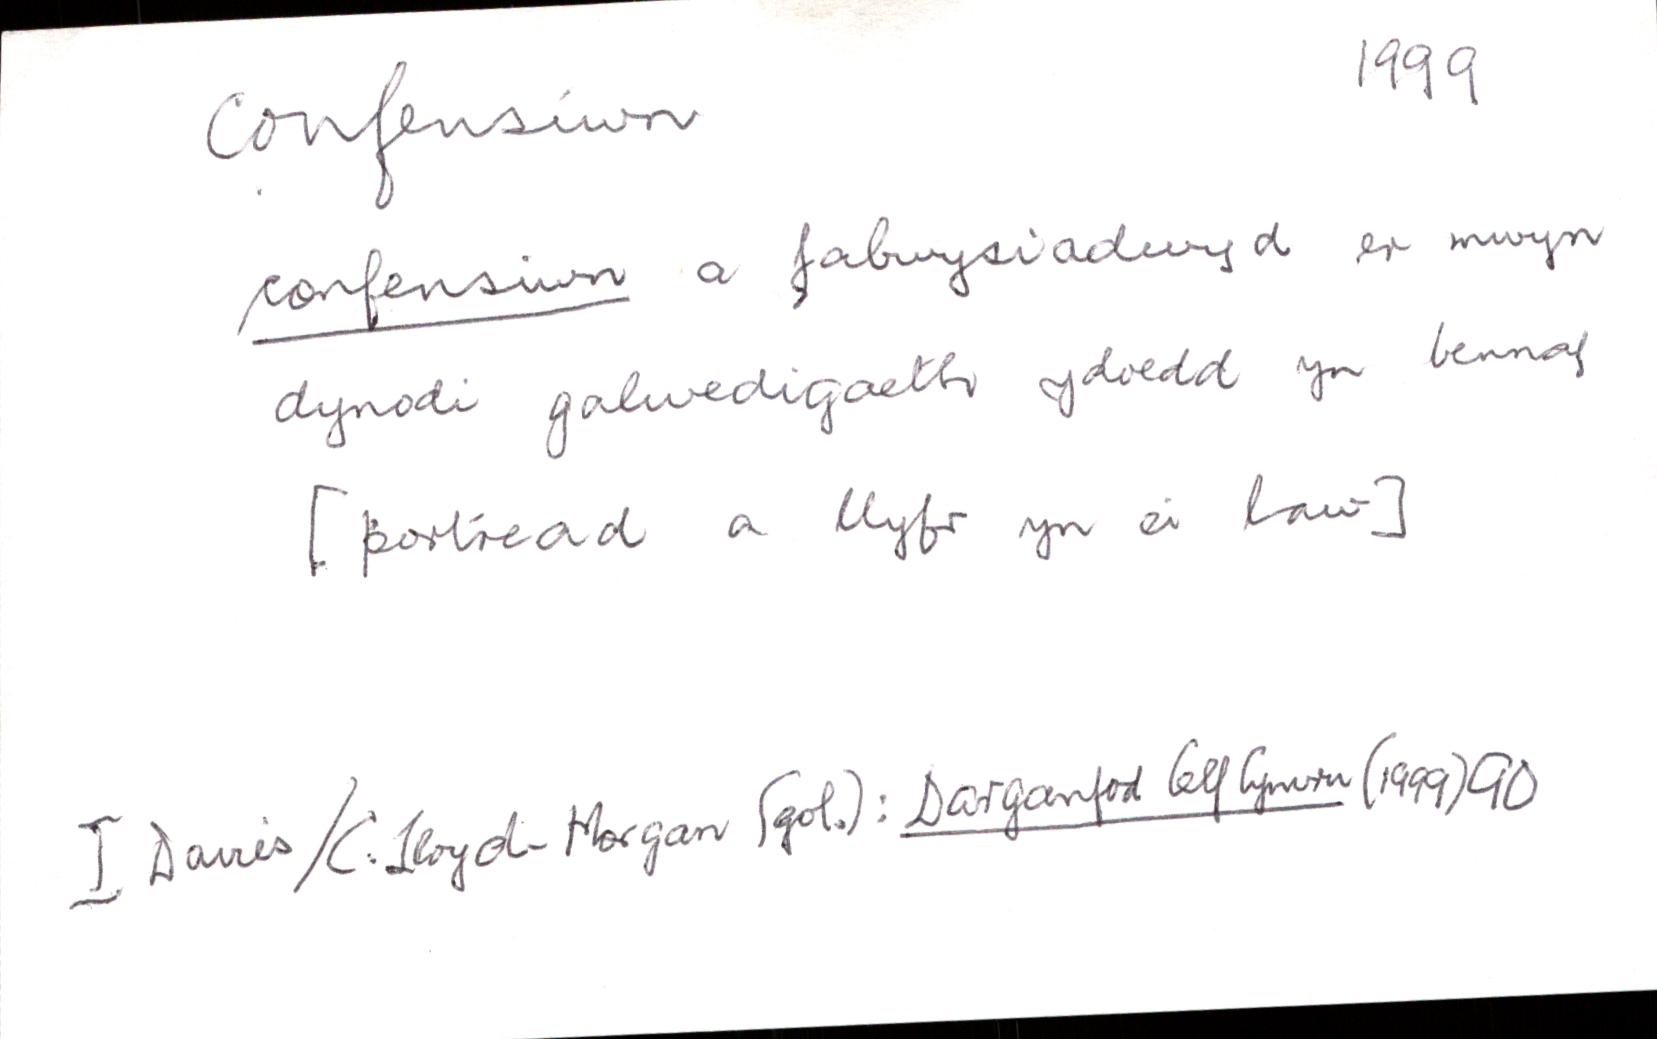 confensiwn 1999
confensiwn a fabwysiadwyd er mwyn
dynodi galwedigaeth ydoedd yn bennaf
[portread a llyfr yn ei law]
I Davies/C. Lloyd-Morgan (gol.): Darganfod Celf Cymru (1999) 90